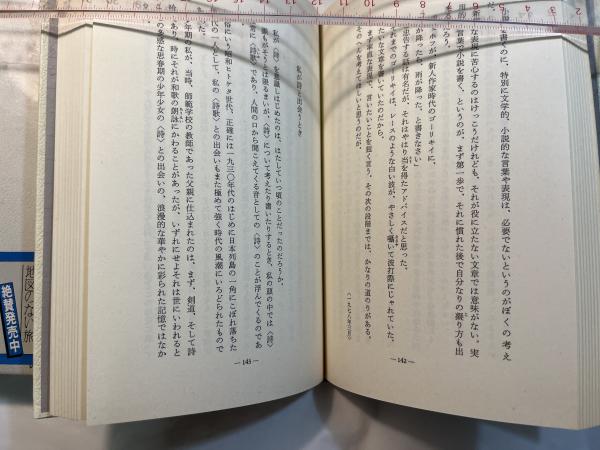 小説を書くのに、特別に文学的、小説的な言葉や表現は、必要でないというのがぼくの考え
新鮮な表現に苦心するのはけっこうだけれども、それが役に立たない文章では意味がない。実
言葉で小説を書く、というのが、まず第一歩で、それに慣れた後で自分なりの綴り方も出
ろう。
ホフが、新人作家時代のゴーリキイに、
が降ったら、雨が降った、と書きなさい」
忠告するは有名だが、それはやはり当を得たアドバイスだと思った。
れまでのゴーリキイは、レースのような白い波が、やさしく囁いて波打際にじゃれていた、
たいな文章を書いていたのだから。
まず率直な表現で、言いたいことを鋭く言う、その次の段階までは、かなりの道のりがある。
そのへんを考えてほしいと思うのだが。
(一九七八年六月)
— 142 —
私が詩と出会うとき
私が〈詩〉を意識しはじめたのは、はたしていつ頃のことだったのだろうか。
誰もがそうとは限るまいが、〈詩〉について考えたり書いたりするとき、私の頭の中では〈詩〉
常に〈詩歌〉であり、人間の口から聞こえてくる音としての〈詩〉のことが浮んでくるのであ
俗にいう昭和ヒトケタ世代、正確には一九三〇年代のはじめに日本列島の一角にこぼれ落ちた
代の一人として、私の〈詩歌〉との出会いもまた極めて強く時代の風潮にいろどられたもので
た。
年期の私が、当時、師範学校の教師であった父親に仕込まれたのは、まず、剣道、そして詩
あり、時にそれが和歌の朗詠にかわることがあったが、いずれにせよそれは世にいわれると
の多感な思春期の少年少女の〈詩〉との出会いの、浪漫的な華やかに彩られた記憶ではなか
— 143 —
地図のない旅
絶賛発売中